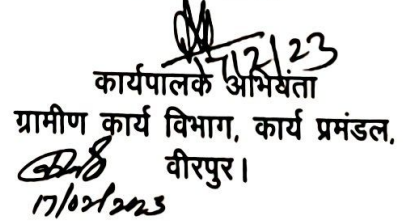 17/2/23
कार्यपालक अभियंता
ग्रामीण कार्य विभाग, कार्य प्रमंडल,
वीरपुर।
17/02/2023